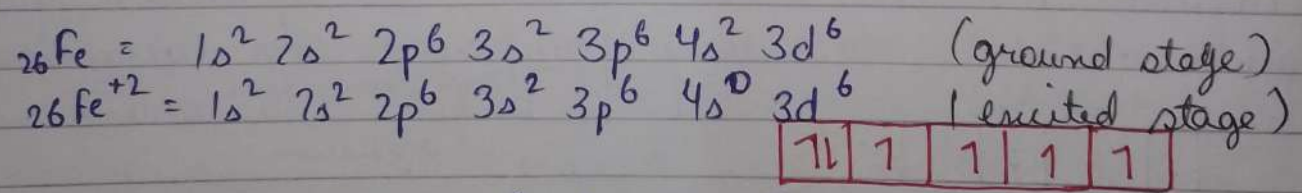 ₂₆Fe = 1s² 2s² 2p⁶ 3s² 3p⁶ 4s² 3d⁶ (ground stage)
₂₆Fe⁺² = 1s² 2s² 2p⁶ 3s² 3p⁶ 4s⁰ 3d⁶ (excited stage)
1l 1 1 1 1